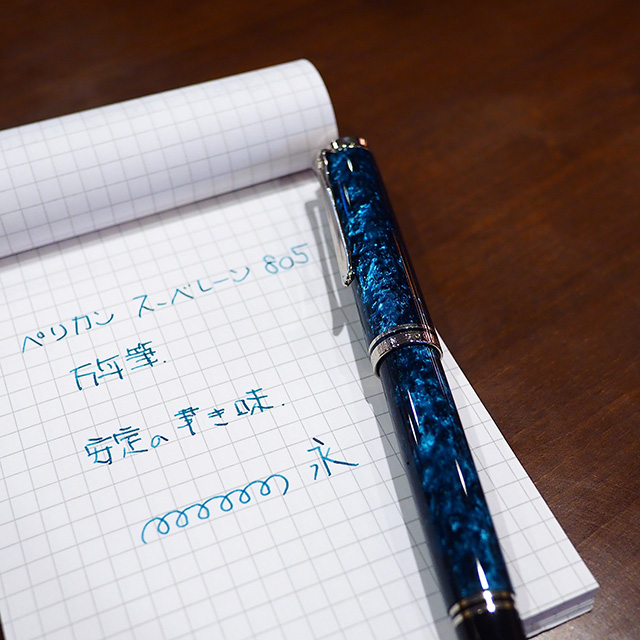 ペリカン スーベレーン 805
万年筆.
安定の書き味.
永